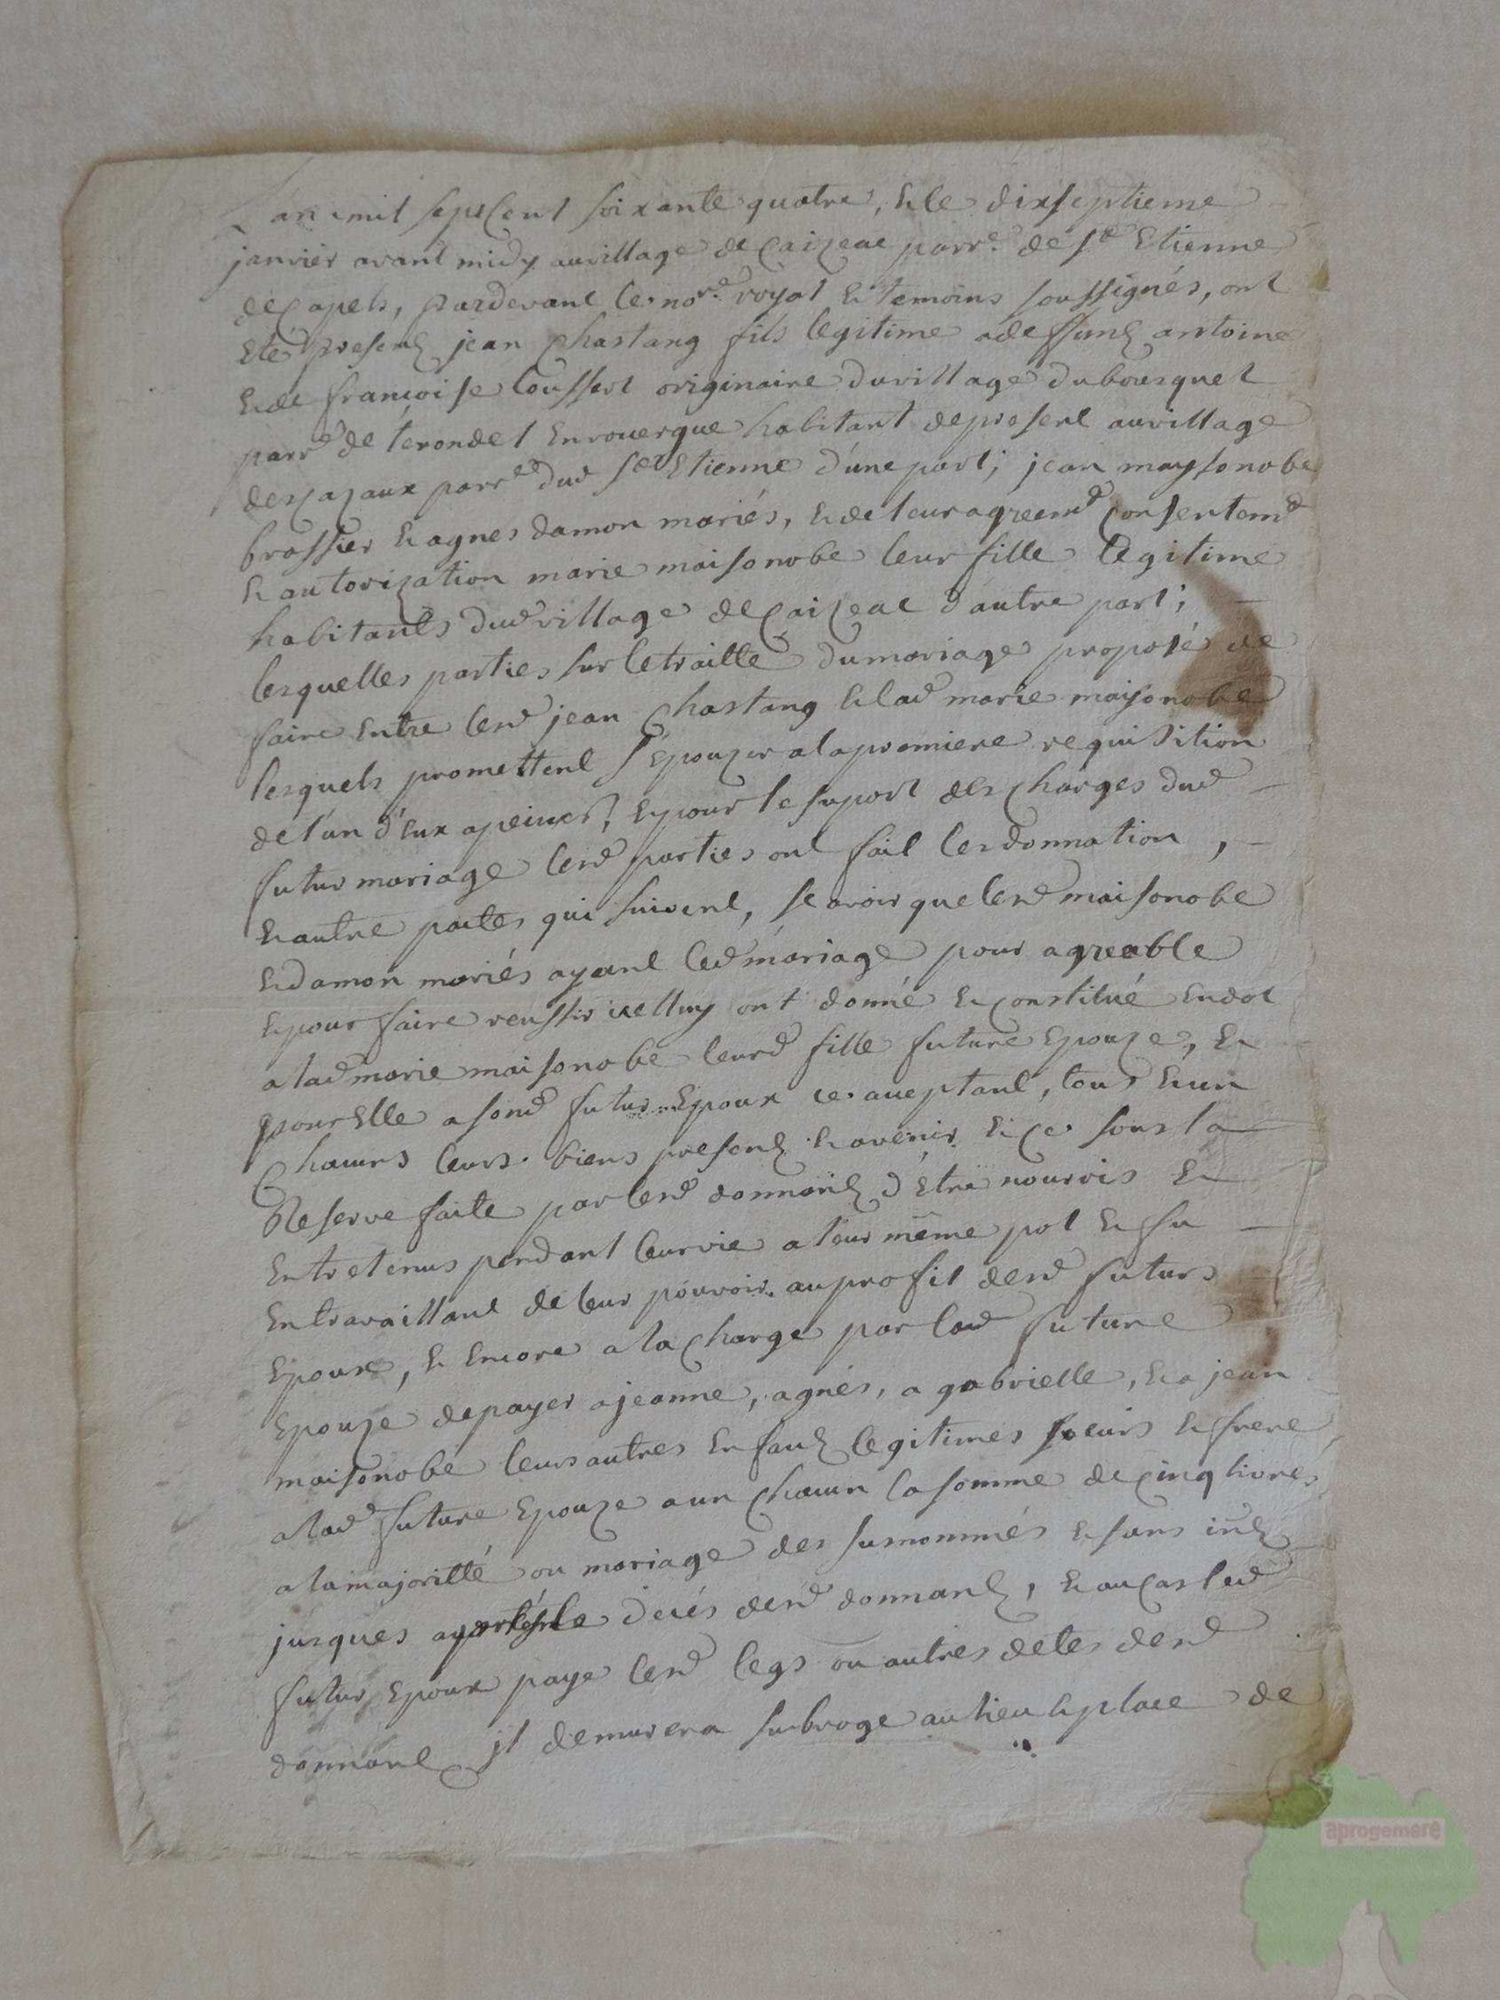 L'an mil sept Cent soixante quatre, & le dixseptieme
janvier avant midy au village de Caizeac parr.e de St Etienne
de Capels, pardevant le no.re royal & temoins soussignés, ont
Eté presens jean Chastang fils legitime a deffuns antoine
& de françoise Coussert originaire du village du bousquet
parr.e de térondel En rouergue habitant de present au village
de parr.e dud St Etienne d'une part; jean maysonobe
brassier & agnes damon mariés, & de leur agreem.t Consentem.t
& autorization marie maisonobe leur fille legitime
habitants dud village de Caizeac d'autre part;
lesquelles parties sur le traitté du mariage proposé de
faire Entre lesd jean Chastang & lad marie maisonobe
lesquels promettent s'Epouzer a la premiere requisition
de l'un d'Eux a peine, & pour le suport des Charges dud
futur mariage lesd parties ont fait les donnation,
& autre pactes qui suivent, scavoir que lesd maisonobe
& damon mariés ayant led mariage pour agreable
& pour faire reussir icelluy ont donné & Constitué En dot
a lad marie maisonobe leurd fille future Epouze, &
pour Elle a sond futur Epoux ce acceptant, tous & un
Chacuns leurs biens presens & avenir & ce sous la
Reserve faite par lesd donnans d'Etre nourris &
Entretenus pendant leur vie a leur même pot & fu
En travaillant de leur pouvoir au profit desd futurs
Epoux, & Encore a la Charge par lad future
Epouze de payer a jeanne, agnés, a gabrielle, & a jean
maisonobe leurs autres Enfans legitimes soeurs & frere
a lad future Epouze a un Chacun la somme de Cinq livres
a la majoritté ou mariage des surnommés & sans in.s
jusques aprés le decés desd donnans, & au Cas led
futur Epoux paye lesd legs ou autres detes desd
donnans jl demurera subroge au lieu & place de
aprogemere